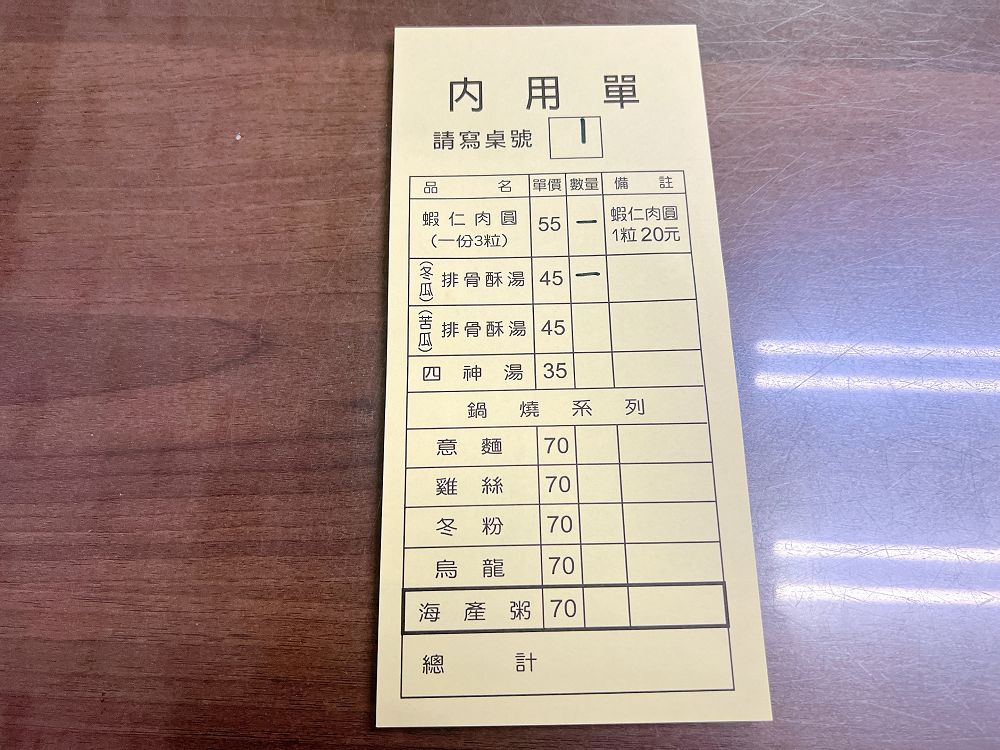 內用單
請寫桌號 1
品名 單價 數量 備註
蝦仁肉圓 (一份3粒) 55 一 蝦仁肉圓 1粒20元
(冬瓜)排骨酥湯 45 一
(苦瓜)排骨酥湯 45
四神湯 35
鍋燒系列
意麵 70
雞絲 70
冬粉 70
烏龍 70
海產粥 70
總計